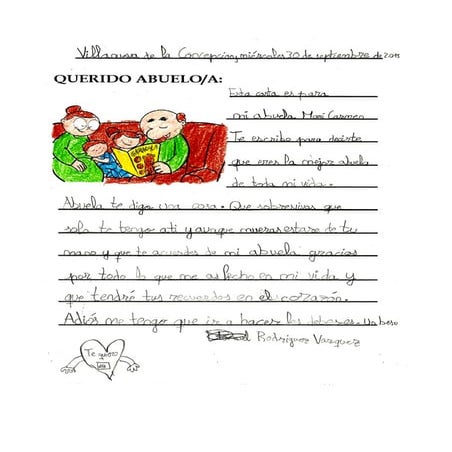 Villanueva de la Concepción, miércoles 30 de septiembre de 2015
QUERIDO ABUELO/A:
Esta carta es para
mi abuela Mari Carmen
Te escribo para decirte
que eres la mejor abuela
de toda mi vida.
Abuela te digo una cosa. Que sobrevivas que
solo te tengo a ti y aunque mueras estare de tu
mano y que te acuerdes de mi abuela gracias
por todo lo que me as hecho en mi vida y
que tendré tus recuerdos en el corazón.
Adiós me tengo que ir a hacer los deberes. Un beso
Rodríguez Vázquez
Te quiero